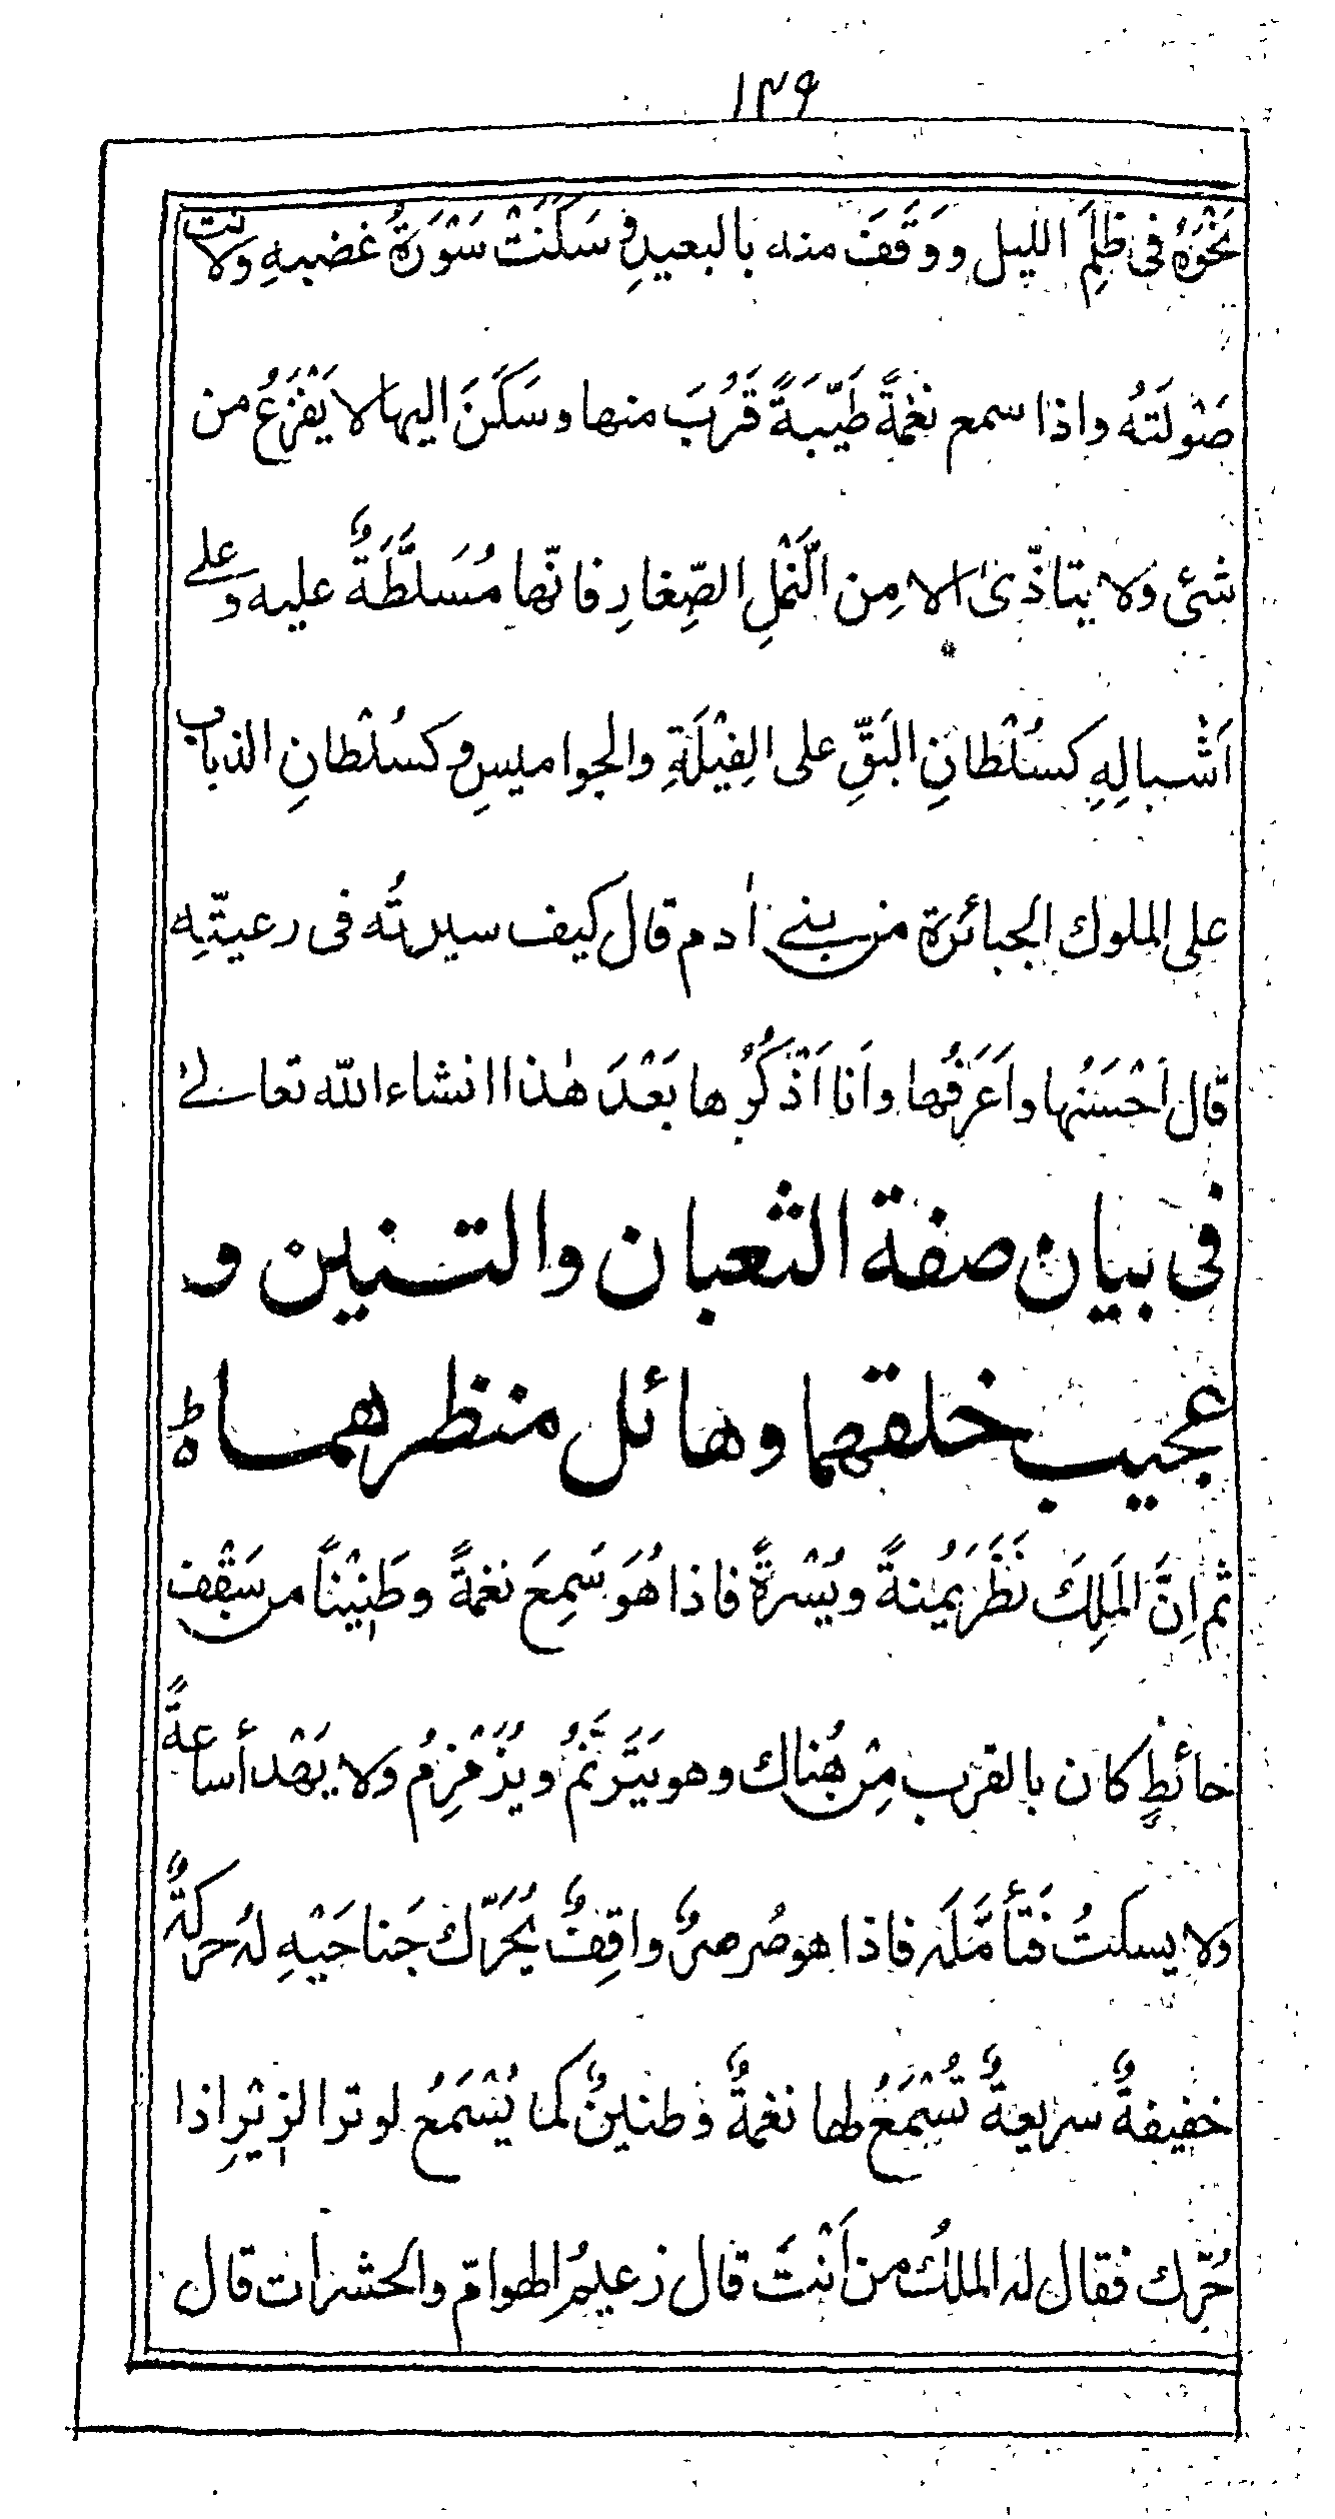 ١٣٩
نَحْوَهُ فى ظُلَمِ الليل ووَقَفَ منه بالبعيدِ وسَكَنَتْ سَوْرَةُ غضبهِ ولانت
صَوْلَتَهُ واذا سمع نغمةً طَيّبَةً قَرُبَ منها وسَكَنَ اليها لا يَفْزَعُ من
شئ ولا يتاذّىٰ الا مِن النَّمْلِ الصِّغارِ فانّها مُسَلَّطَةٌ عليه وعلے
اَشْبالِهِ كسُلْطانِ البَقِّ على الفِيْلَةِ والجواميسِ وكسُلْطانِ الذباب
على الملوك الجبائرة من بنے اٰدم قال كيف سيرتُه فى رعيتّهِ
قال اَحْسَنُها واَعَرَفُها وانا اَذْكُرُها بَعْدَ هٰذا انشاء الله تعالےٰ
فى بيان صفة الثعبان والتنين و
عجيب خلقهما وهائل منظرهما ؕہ
ثم اِنَّ المَلِكَ نَظَرَ يَمُنةً ويُسْرةً فاذا هُوَ سَمِعَ نغمةً وطَنِيْناً من سَقْف
حائطٍ كان بالقرب مِن هُناك وهو يَتَرنَّمُ ويُزَمْزِمُ ولا يَهْدأ ساعةً
ولا يسكتُ فَتأمَّلَه فاذا هو صُرصرٌ واقِفٌ يُحَرّك جَناحَيْهِ لهُ حركةٌ
خفيفةٌ سريعةٌ تُسْمَعُ لها نغمةٌ وطنينٌ كما يُسْمَعُ لوترالزِيْرِ اذا
حُرِّك فقال له الملكُ من اَنْتَ قال زعيمُ الهوامّ والحشرات قال